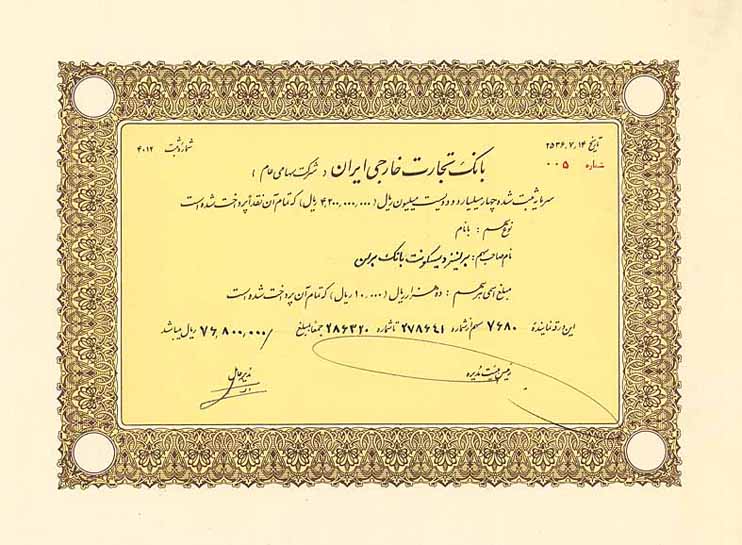 تاریخ ۲۵۳۶٫۷٫۱۴
شماره ثبت ۴۰۱۲
شماره ۰۰۵
بانک تجارت خارجی ایران (شرکت سهامی عام)
سرمایه ثبت شده چهار میلیارد و دویست میلیون ریال (۴٬۲۰۰٬۰۰۰٬۰۰۰ ریال) که تمام آن نقداً پرداخت شده است
نوع سهم : بانام
نام صاحب سهم : برلینر دیسکونت بانک برلن
مبلغ اسمی هر سهم : ده هزار ریال (۱۰٬۰۰۰ ریال) که تمام آن پرداخت شده است
این ورقه نماینده ۷۶۸۰ سهم از شماره ۲۷۸۶۴۱ تا شماره ۲۸۶۳۲۰ جمعاً بمبلغ ۷۶٬۸۰۰٬۰۰۰/ ریال میباشد
رئیس هیئت مدیره
مدیر عامل